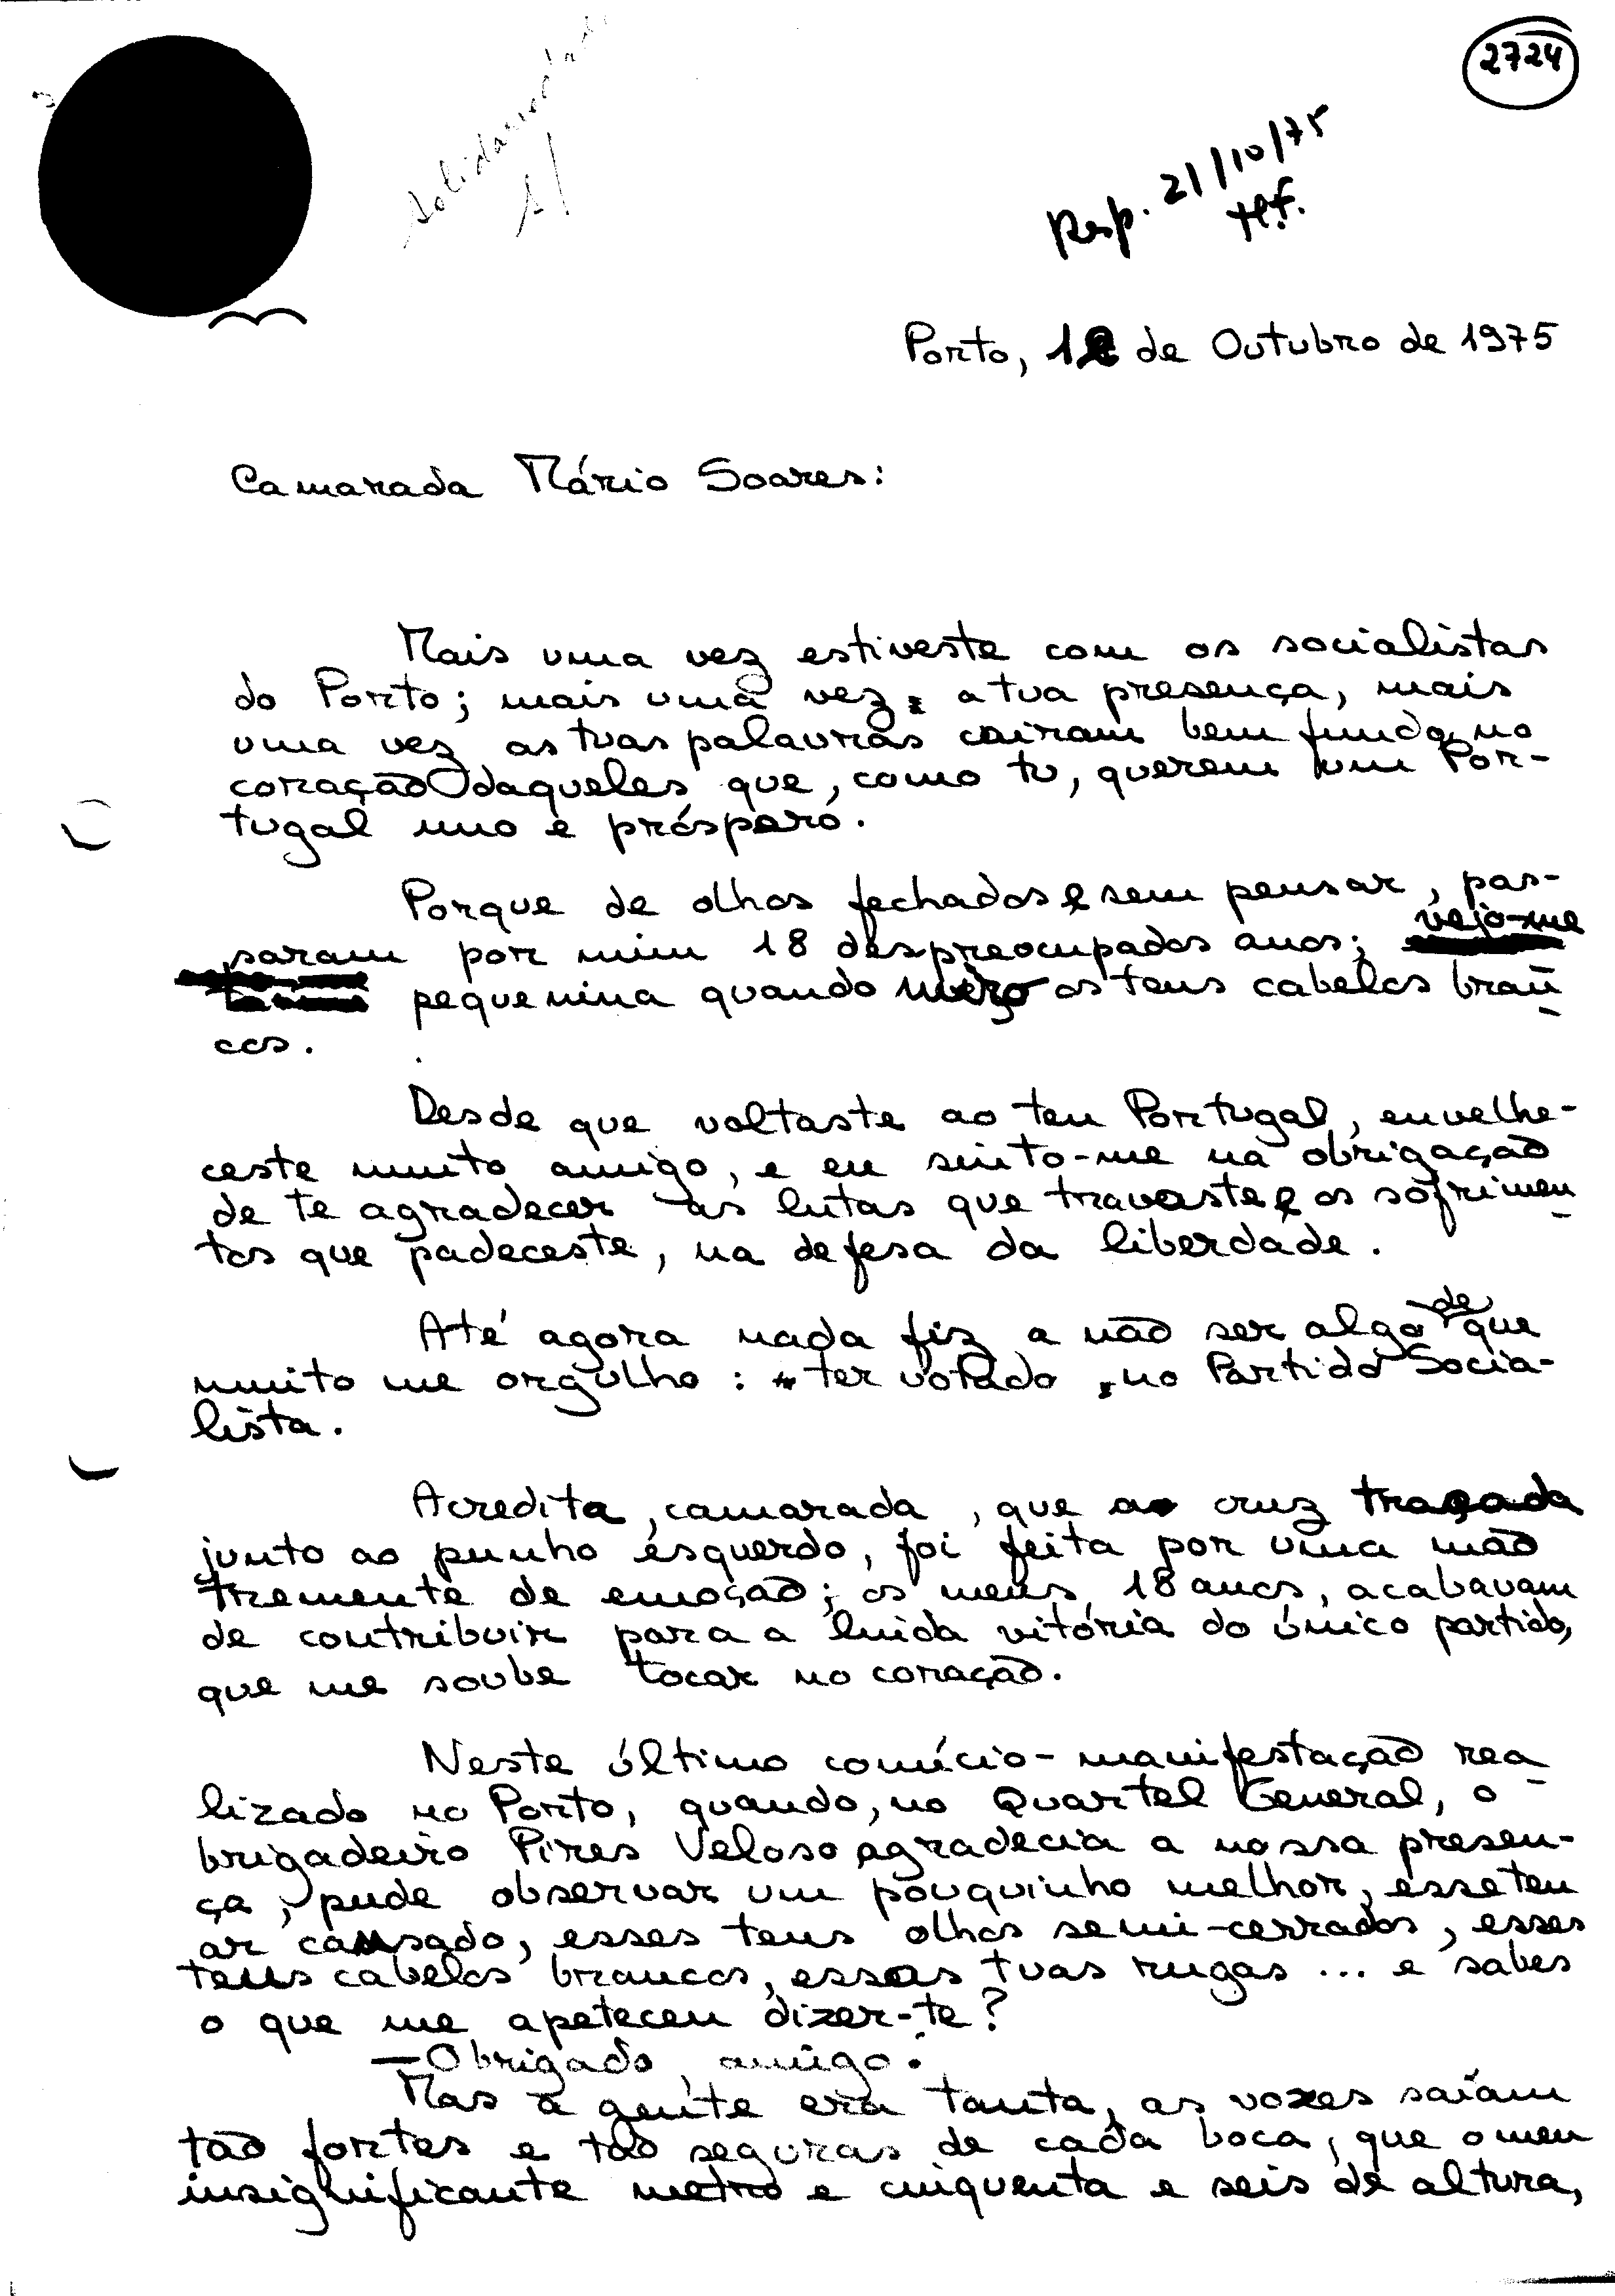 2724
Solidariedade
Resp. 21/10/75
tlf.
Porto, 12 de Outubro de 1975
Camarada Mário Soares:
Mais uma vez estiveste com os socialistas
do Porto; mais uma vez, a tua presença, mais
uma vez as tuas palavras cairam bem fundo, no
coração daqueles que, como tu, querem um Por-
tugal uno e próspero.
Porque de olhos fechados e sem pensar, pas-
saram por mim 18 despreocupados anos; vejo-me
pequenina quando miro os teus cabelos bran
cos.
Desde que voltaste ao teu Portugal, envelhe-
ceste muito amigo, e eu sinto-me na obrigação
de te agradecer as lutas que travaste e os sofrimen
tos que padeceste, na defesa da liberdade.
Até agora nada fiz a não ser algo de que
muito me orgulho: ter votado, no Partido Socia-
lista.
Acredita, camarada, que a cruz traçada
junto ao punho esquerdo, foi feita por uma mão
tremente de emoção; os meus 18 anos, acabavam
de contribuir para a linda vitória do único partido,
que me soube tocar no coração.
Neste último comício-manifestação rea
lizado no Porto, quando, no Quartel General, o
brigadeiro Pires Veloso agradecia a nossa presen-
ça, pude observar um pouquinho melhor, esse teu
ar cansado, esses teus olhos semi-cerrados, esses
teus cabelos brancos, essas tuas rugas... e sabes
o que me apeteceu dizer-te?
—Obrigado, amigo.
Mas a gente era tanta, as vozes saíam
tão fortes e tão seguras de cada boca, que o meu
insignificante metro e cinquenta e seis de altura,